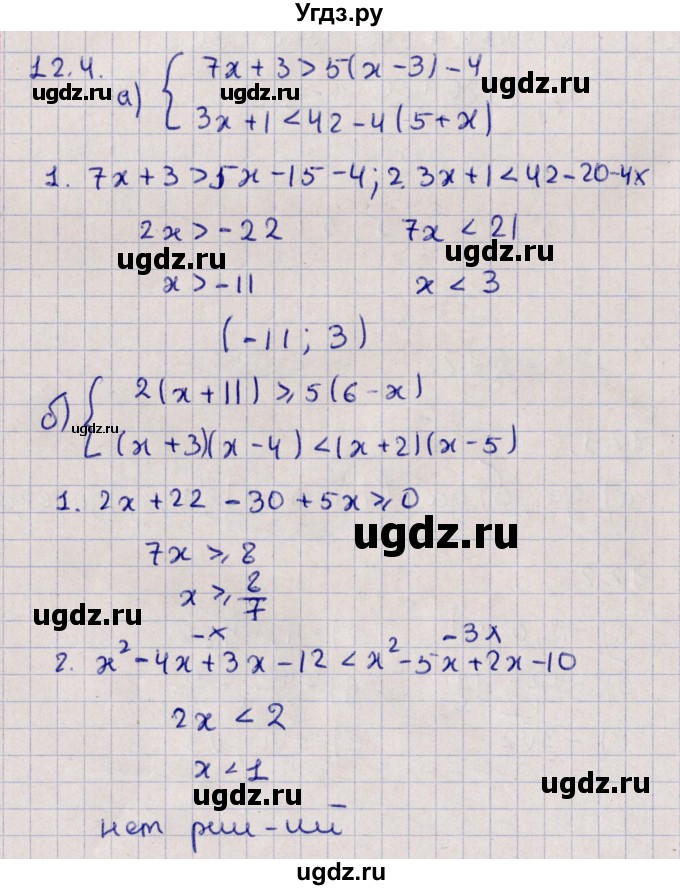 Угдз.ру
12.4.
а) { 7x + 3 > 5(x - 3) - 4
3x + 1 < 42 - 4(5 + x)
ugdz.ru ugdz.ru ugdz.ru
1. 7x + 3 > 5x - 15 - 4; 2. 3x + 1 < 42 - 20 - 4x
2x > -22 7x < 21
ugdz.ru ugdz.ru
x > -11 x < 3
(-11; 3)
б) { 2(x + 11) ⩾ 5(6 - x)
ugdz.ru
(x + 3)(x - 4) < (x + 2)(x - 5)
1. 2x + 22 - 30 + 5x ⩾ 0
ugdz.ru
7x ⩾ 8
x ⩾ 8/7
ugdz.ru
-x -3x
2. x² - 4x + 3x - 12 < x² - 5x + 2x - 10
2x < 2
x < 1
ugdz.ru ugdz.ru
нет реш-ий
ugdz.ru